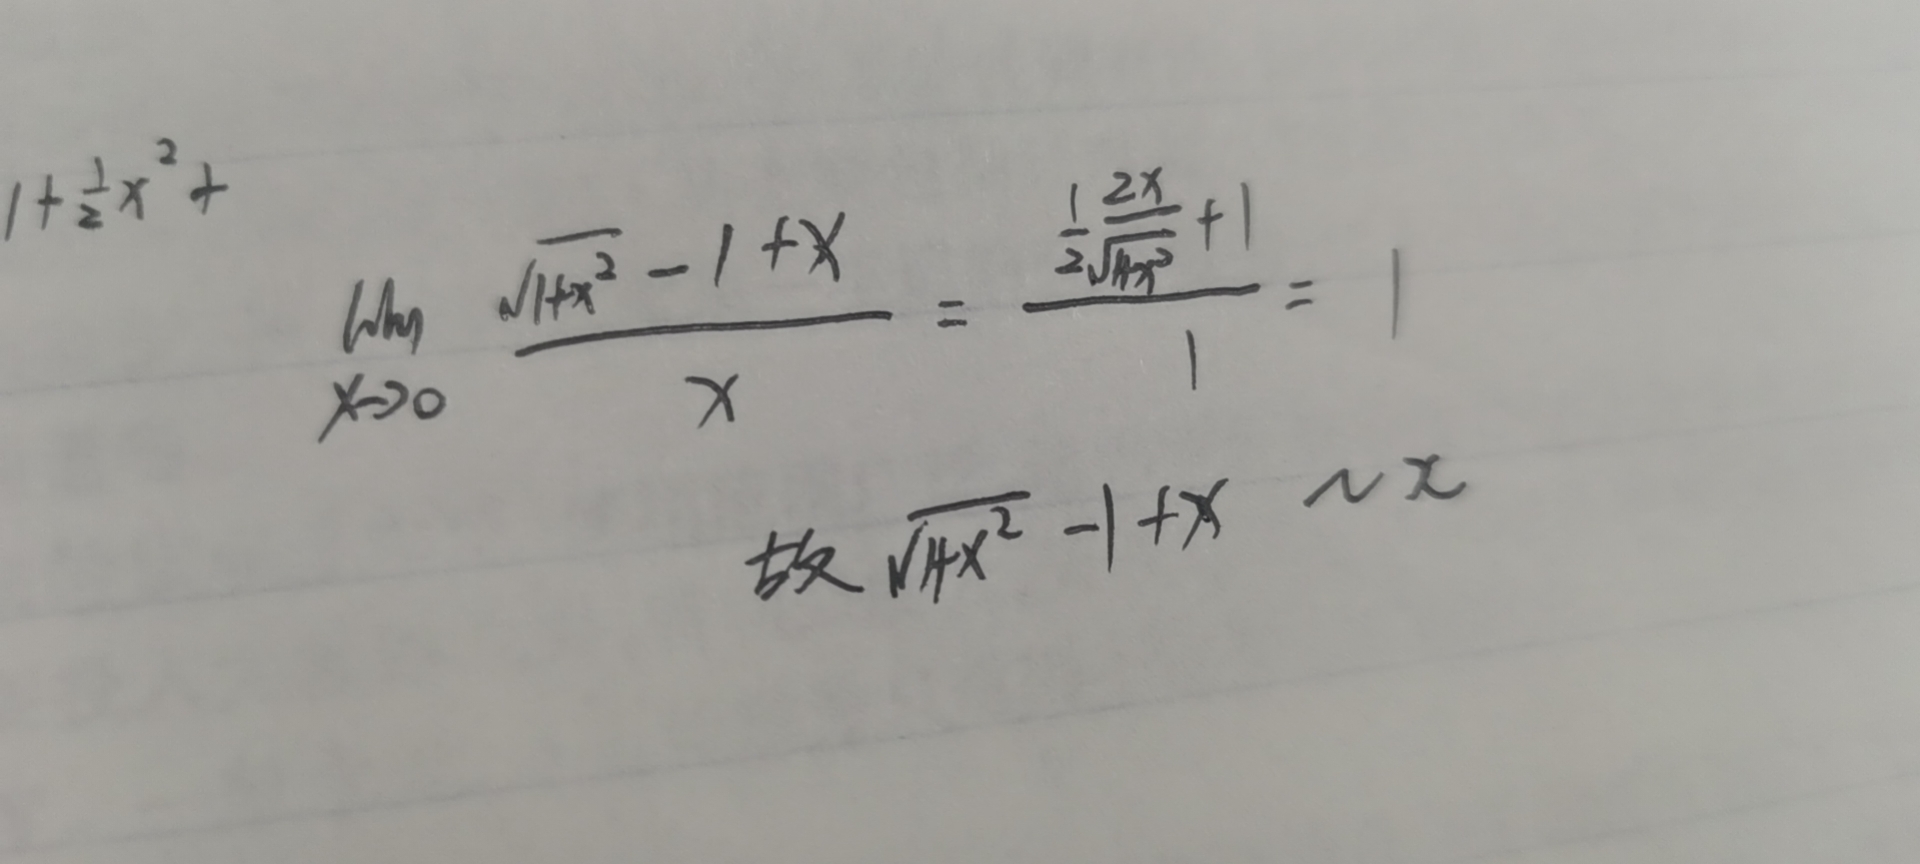 1+½x²+
lim x→0 (√(1+x²) -1+x)/x = (½ 2x/√(1+x²) +1)/1 = 1
故 √(1+x²) -1+x ~ x